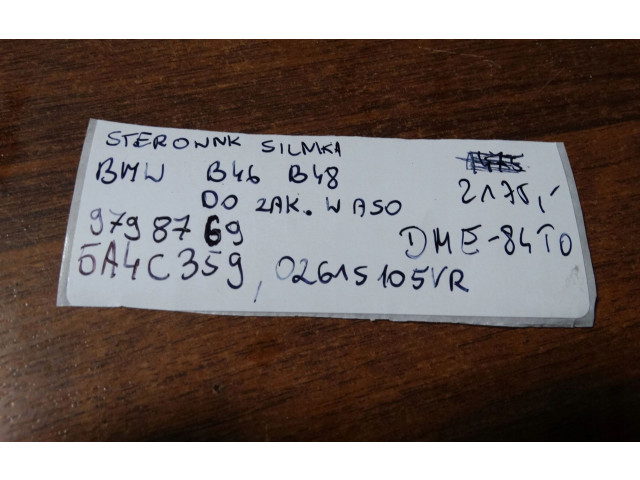 STEROWNK SILNIKA
BMW B46 B48
DO ZAK. W ASO 2175,-
9798769 DME-84T0
5A4C359, 0261S105VR